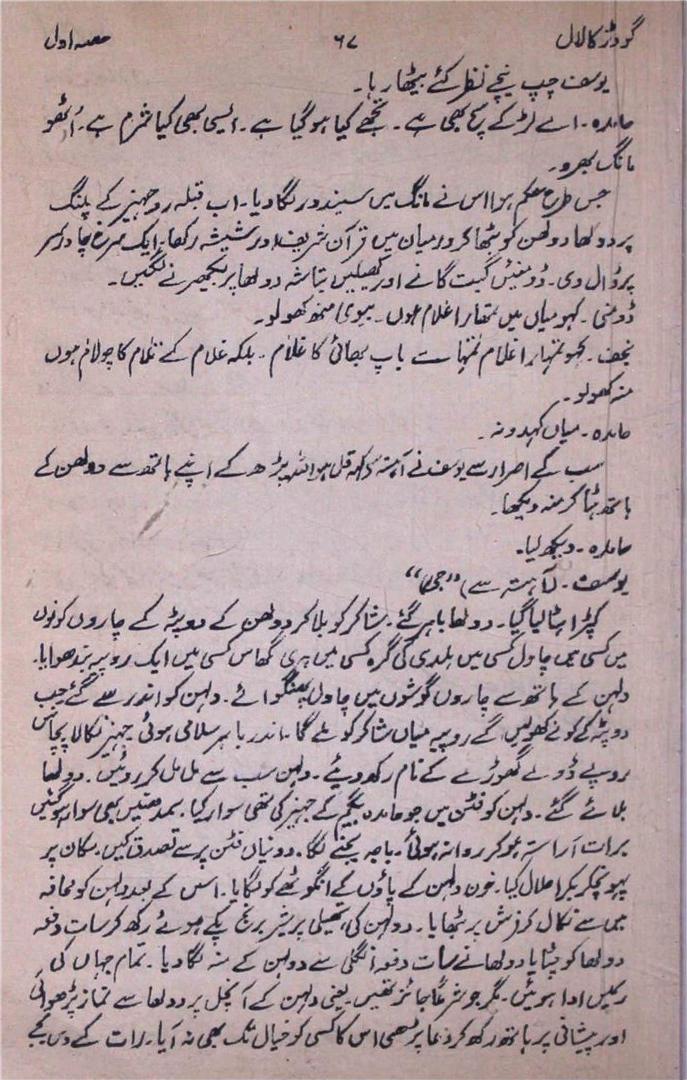 گودڑ کا لال ۶۷ حصہ اول
یوسف چپ نیچے نظر کئے بیٹھا رہا۔
حامدہ۔ اے لڑکے سچ بھی ہے۔ تجھے کیا ہو گیا ہے۔ ایسی بھی کیا شرم ہے۔ اُٹھو
مانگ بھرو۔
جس طرح حکم ہوا اس نے مانگ میں سیندور لگا دیا۔ اب قبلہ رو جہیز کے پلنگ
پر دولھا دولھن کو بٹھا کر درمیان میں قرآن شریف اور شیشہ رکھا۔ ایک سرخ چادر سر
پر ڈال دی۔ ڈومنیں گیت گانے اور کھیلیں بتاشہ دولھا پر بکھیرنے لگیں۔
ڈومنی۔ کہو میاں میں تمھارا غلام ہوں۔ بیوی منھ کھولو۔
نجف۔ کہو تمہارا غلام تمہارے باپ بھائی کا غلام۔ بلکہ غلام کے غلام کا چولام ہوں
منہ کھولو۔
حامدہ۔ میاں کہدو نہ۔
سب کے اصرار سے یوسف نے آہستہ کہہ قل ہو اللہ پڑھ کے اپنے ہاتھ سے دولھن کے
ہاتھ ہٹا کر منہ دیکھا۔
حامدہ۔ دیکھ لیا۔
یوسف۔ (آہستہ سے) ”جی“
کپڑا ہٹا لیا گیا۔ دولھا باہر گئے۔ شاکر کو بلا کر دولھن کے دوپٹہ کے چاروں کونوں
میں کسی میں چاول کسی میں ہلدی کی گرہ کسی میں ہری گھاس کسی میں ایک روپیہ بندھوایا۔
دلہن کے ہاتھ سے چاروں گوشوں میں چاول پھنکوائے۔ دلہن کو اندر لے گئے جب
دوپٹہ کے کونے کھولیں گے روپیہ میاں شاکر کو ملے گا۔ اندر باہر سلامی ہوئی جہیز نکالا پچاس
روپے ڈولے گھوڑے کے نام رکھ دیئے۔ دلہن سب سے مل مل کر روئیں۔ دولھا
بلائے گئے۔ دلہن کو فٹن میں جو حامدہ بیگم کے جہیز کی تھی سوار کیا۔ سمدھنیں بھی سوار ہو گئیں
برات آراستہ ہو کر روانہ ہوئی۔ باجہ بجنے لگا۔ دونیاں فٹن پر سے تصدق کیں۔ مکان پر
پہونچکر بکرا حلال کیا۔ خون دلہن کے پاؤں کے انگوٹھے کو لگایا۔ اس کے بعد دلہن کو محافہ
میں سے نکال کر فرش پر بٹھایا۔ دولہن کی ہتھیلی پر شیر برنج پکے ہوئے رکھ کر سات دفعہ
دولھا کو چٹایا دولھا نے سات دفعہ انگلی سے دولہن کے منہ لگا دیا۔ تمام جہاں کی
رسمیں ادا ہوئیں۔ مگر جو شرعاً جائز تھیں۔ یعنی دلہن کے آنچل پر دولھا سے نماز پڑھوائی
اور پیشانی پر ہاتھ رکھ کر دعا پڑھنی اس کا کسی کو خیال تک بھی نہ آیا۔ رات کے دس بجے